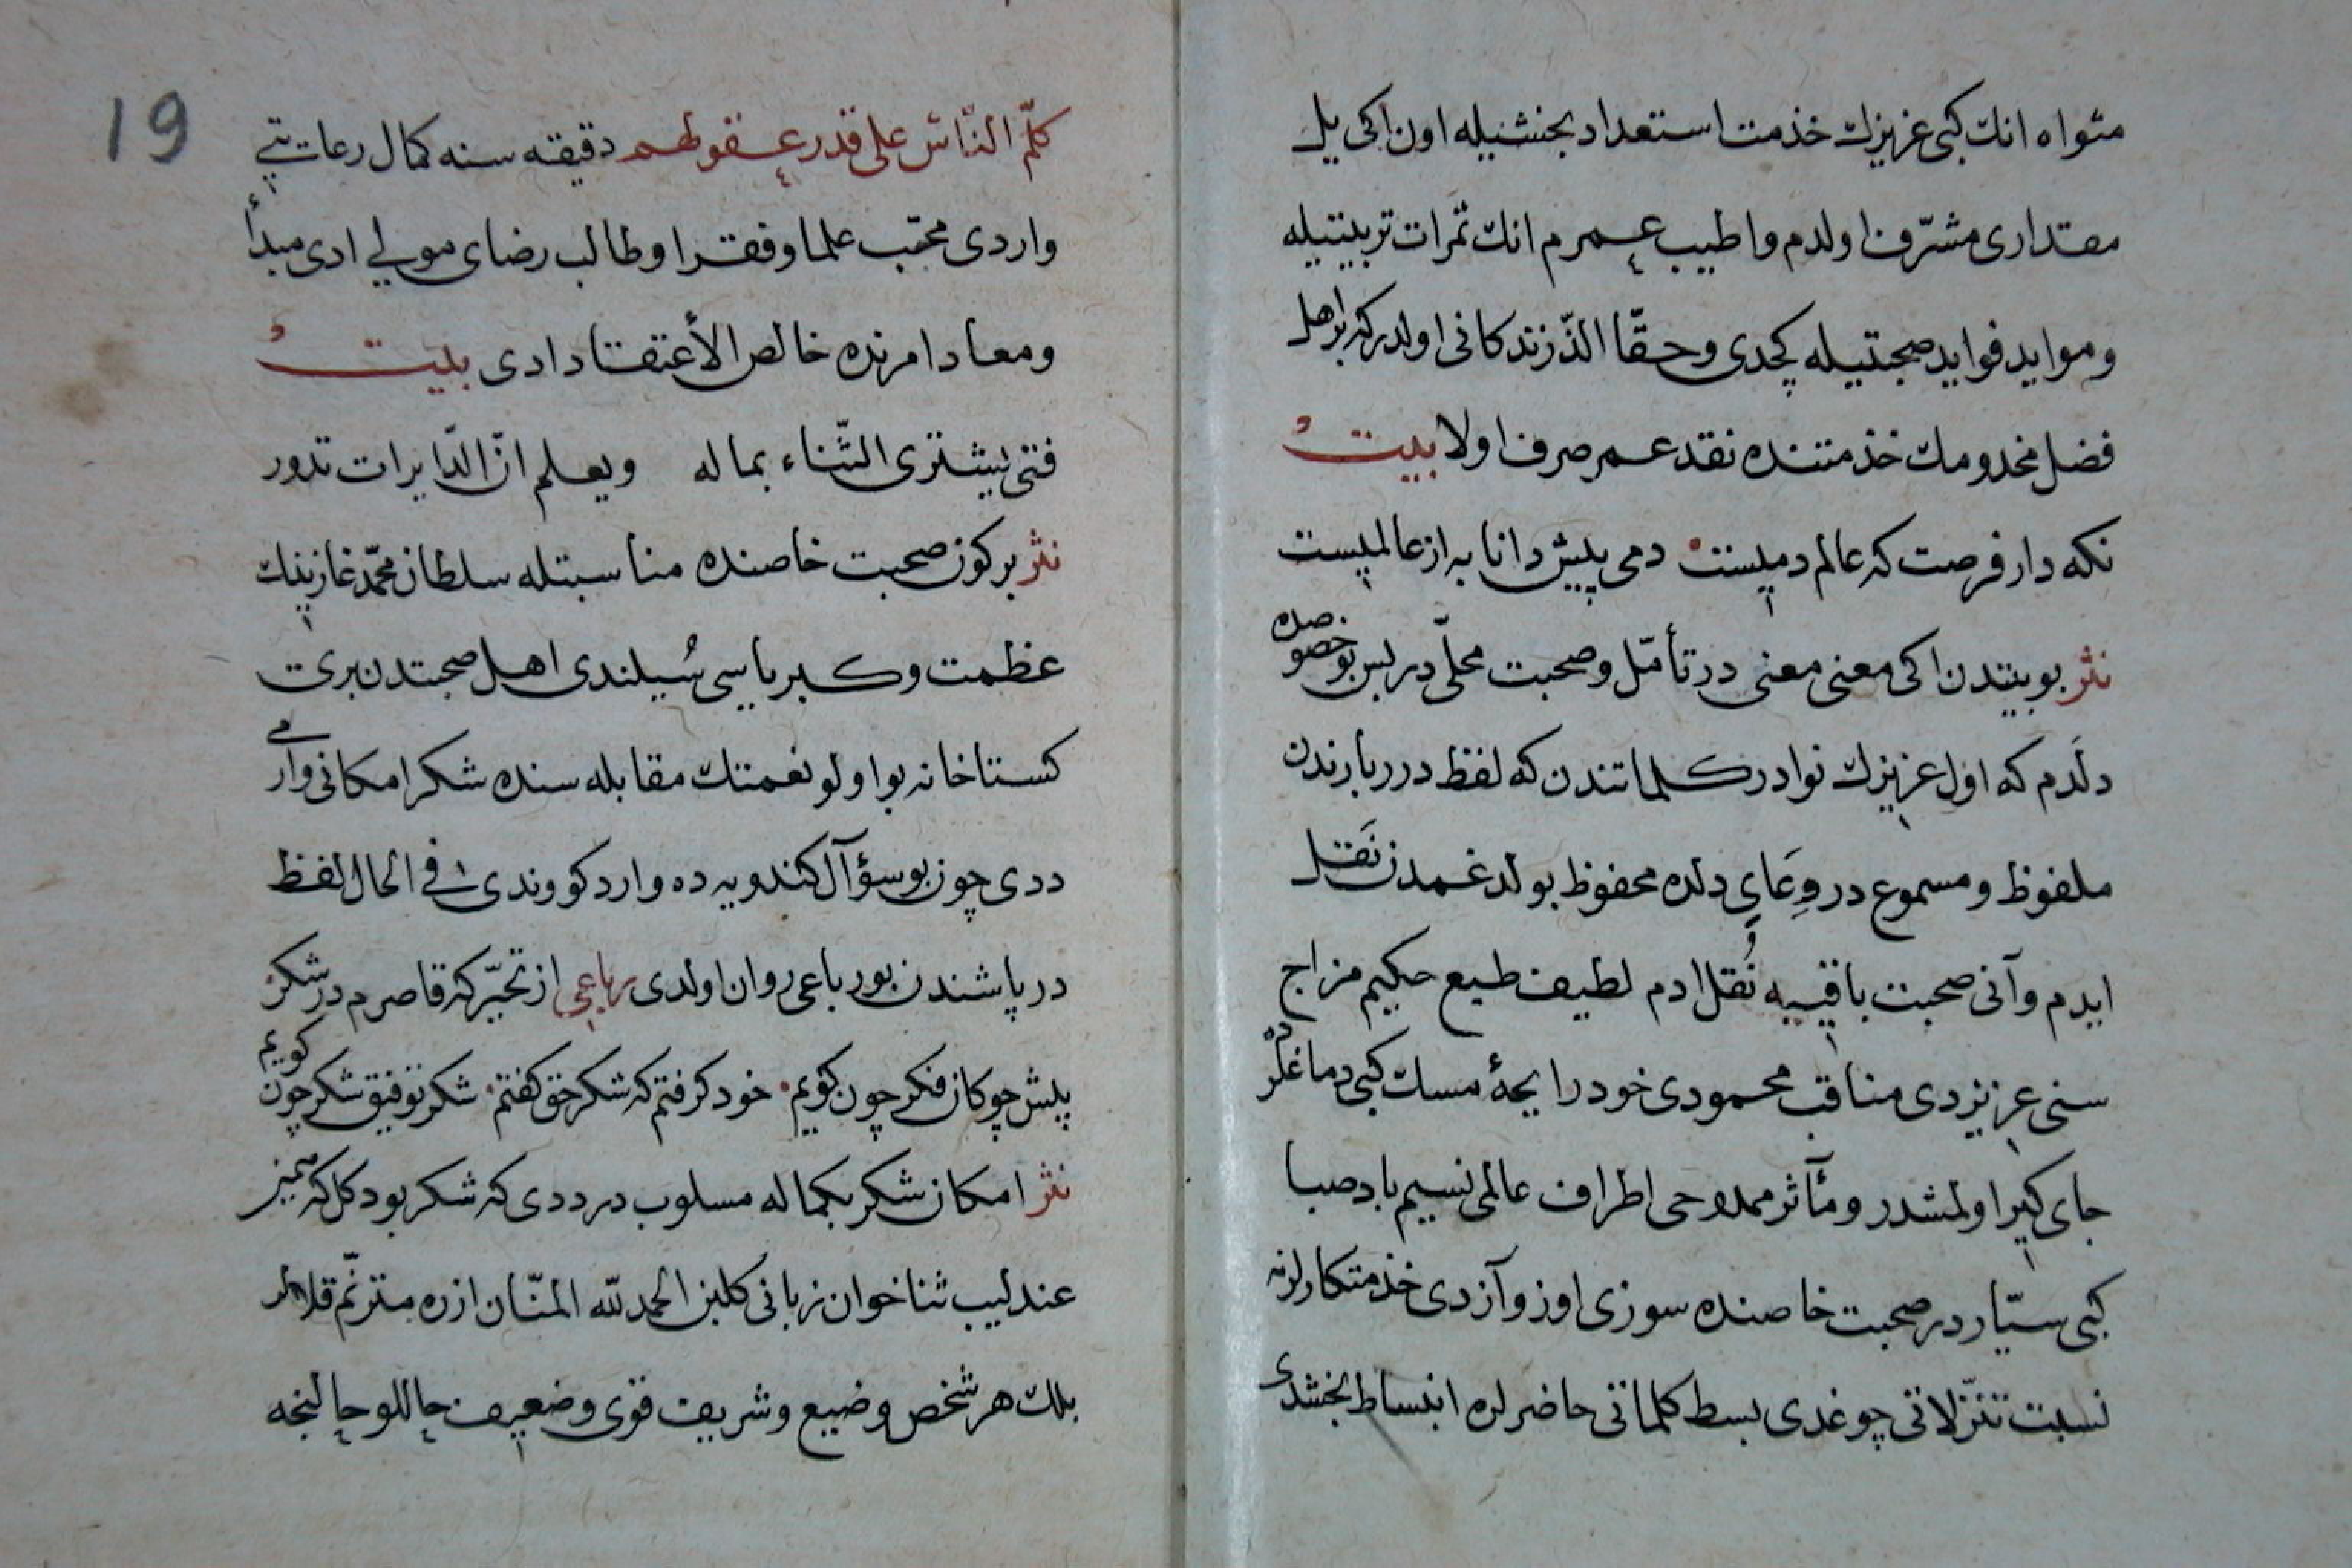 مثواه انك كبی عزیزك خذمت استعداد بخشیله اون اكی یل
مقداری مشرّف اولدم واطیب عمرم انك ثمرات تربیتیله
وموايد فواید صحبتیله كچدی وحقّا الذّ زندكانی اولدر كه بر اهل
فضل مخدومك خذمتنده نقد عمر صرف اولا بیتْ
نكه دار فرصت كه عالم دمیست دمی پیش دانا به از عالمیست
نثر بو بیتدن اكی معنی معنی در تأمّل وصحبت محلّی در بس بو خصوصده
دلَدم كه اول عزیزك نوادر كلماتندن كه لفظ درربارندن
ملفوظ ومسموع در وِعَایِ دلده محفوظ بولدغمدن نَقل
ایدم وآنی صحبت باقییه نُقل ادم لطیف طبع حكیم مزاج
سنی عزیزدی مناقب محمودی خود رایحهٔ مسك كبی دماغلرده
جای كیر اولمشدر ومآثر ممدوحی اطراف عالمی نسیم باد صبا
كبی سیّاردر صحبت خاصنده سوزی اوز وآزدی خذمتكارلرنه
نسبت تنزّلاتی چوغدی بسط كلماتی حاضرلره انبساط بخشدی
19
كلّم النّاس علی قدر عقولهم دقیقه سنه كمال رعایتی
واردی محبّ علما وفقرا وطالب رضای مولی ادی مبدأ
ومعاد امرنده خالص الأعتقاد ادی بیتْ
فتی یشتری الثّناء بماله ویعلم انّ الدّایرات تدور
نثر بر كون صحبت خاصنده مناسبتله سلطان محمّد غازینك
عظمت وكبریاسی سُیلندی اهل صحبتدن بری
كستاخانه بو اولو نعمتك مقابله سنده شكر امكانی وارمی
ددی چون بو سؤآل كندویه ده وارد كورندی فی الحال لفظ
درپاشندن بو رباعی روان اولدی رباعی از تحیّر كه قاصرم در شكر
پیش چوكان فكر چون كویم خود كرفتم كه شكر حق كفتم شكر توفیق شكر چون كویم
نثر امكان شكر بكماله مسلوب در ددی كه شكر بود كل كه
عندلیب ثناخوان زبانی كلبن الحمد لله المنّان ازره مترنّم قلالر
بلك هر شخص وضیع وشریف قوی وضعیف حاللو حالنجه